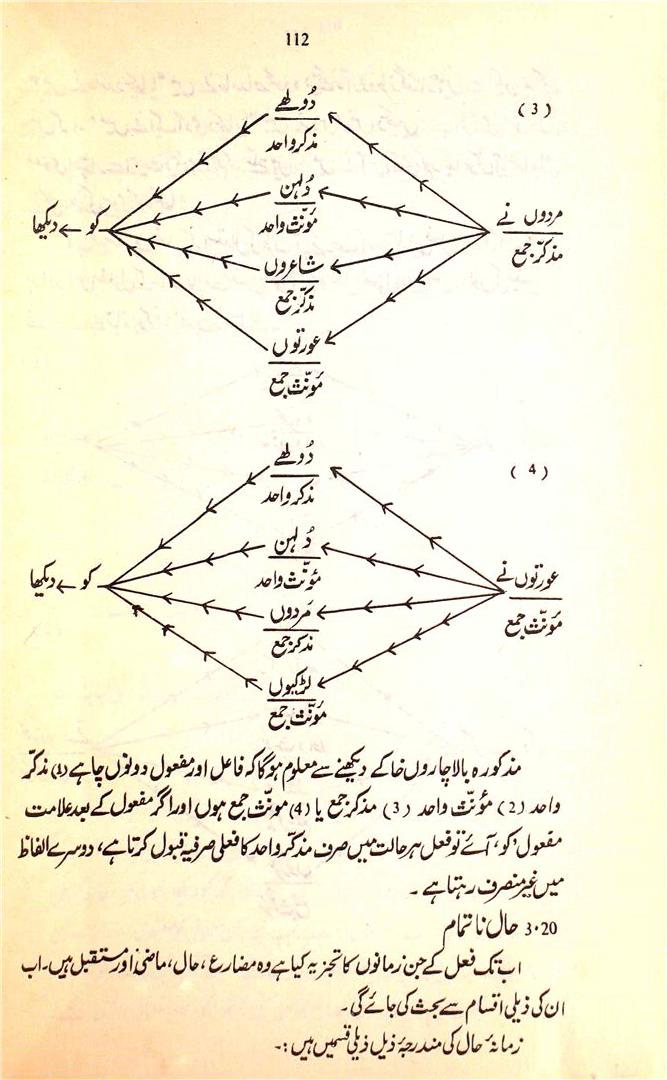 112
(3)
دُولھے
مذکر واحد
دُلہن
مؤنث واحد
مردوں نے
مذکّر جمع
کو ← دیکھا
شاعروں
مذکّر جمع
عورتوں
مؤنّث جمع
(4)
دُولھے
مذکر واحد
دُلہن
مؤنّث واحد
عورتوں نے
مؤنّث جمع
کو ← دیکھا
مَردوں
مذکر جمع
لڑکیوں
مؤنّث جمع
مذکورہ بالا چاروں خاکے دیکھنے سے معلوم ہوگا کہ فاعل اور مفعول دونوں چاہے (1) مذکّر
واحد (2) مؤنّث واحد (3) مذکر جمع یا (4) مونّث جمع ہوں اور اگر مفعول کے بعد علامت
مفعول ’کو‘ آئے تو فعل ہر حالت میں صرف مذکّر واحد کا فعلی صرفیہ قبول کرتا ہے، دوسرے الفاظ
میں غیر منصرف رہتا ہے ۔
3.20 حال ناتمام
اب تک فعل کے جن زمانوں کا تجزیہ کیا ہے وہ مضارع، حال، ماضی اور مستقبل ہیں۔ اب
ان کی ذیلی اقسام سے بحث کی جائے گی۔
زمانۂ حال کی مندرجۂ ذیل ذیلی قسمیں ہیں :۔